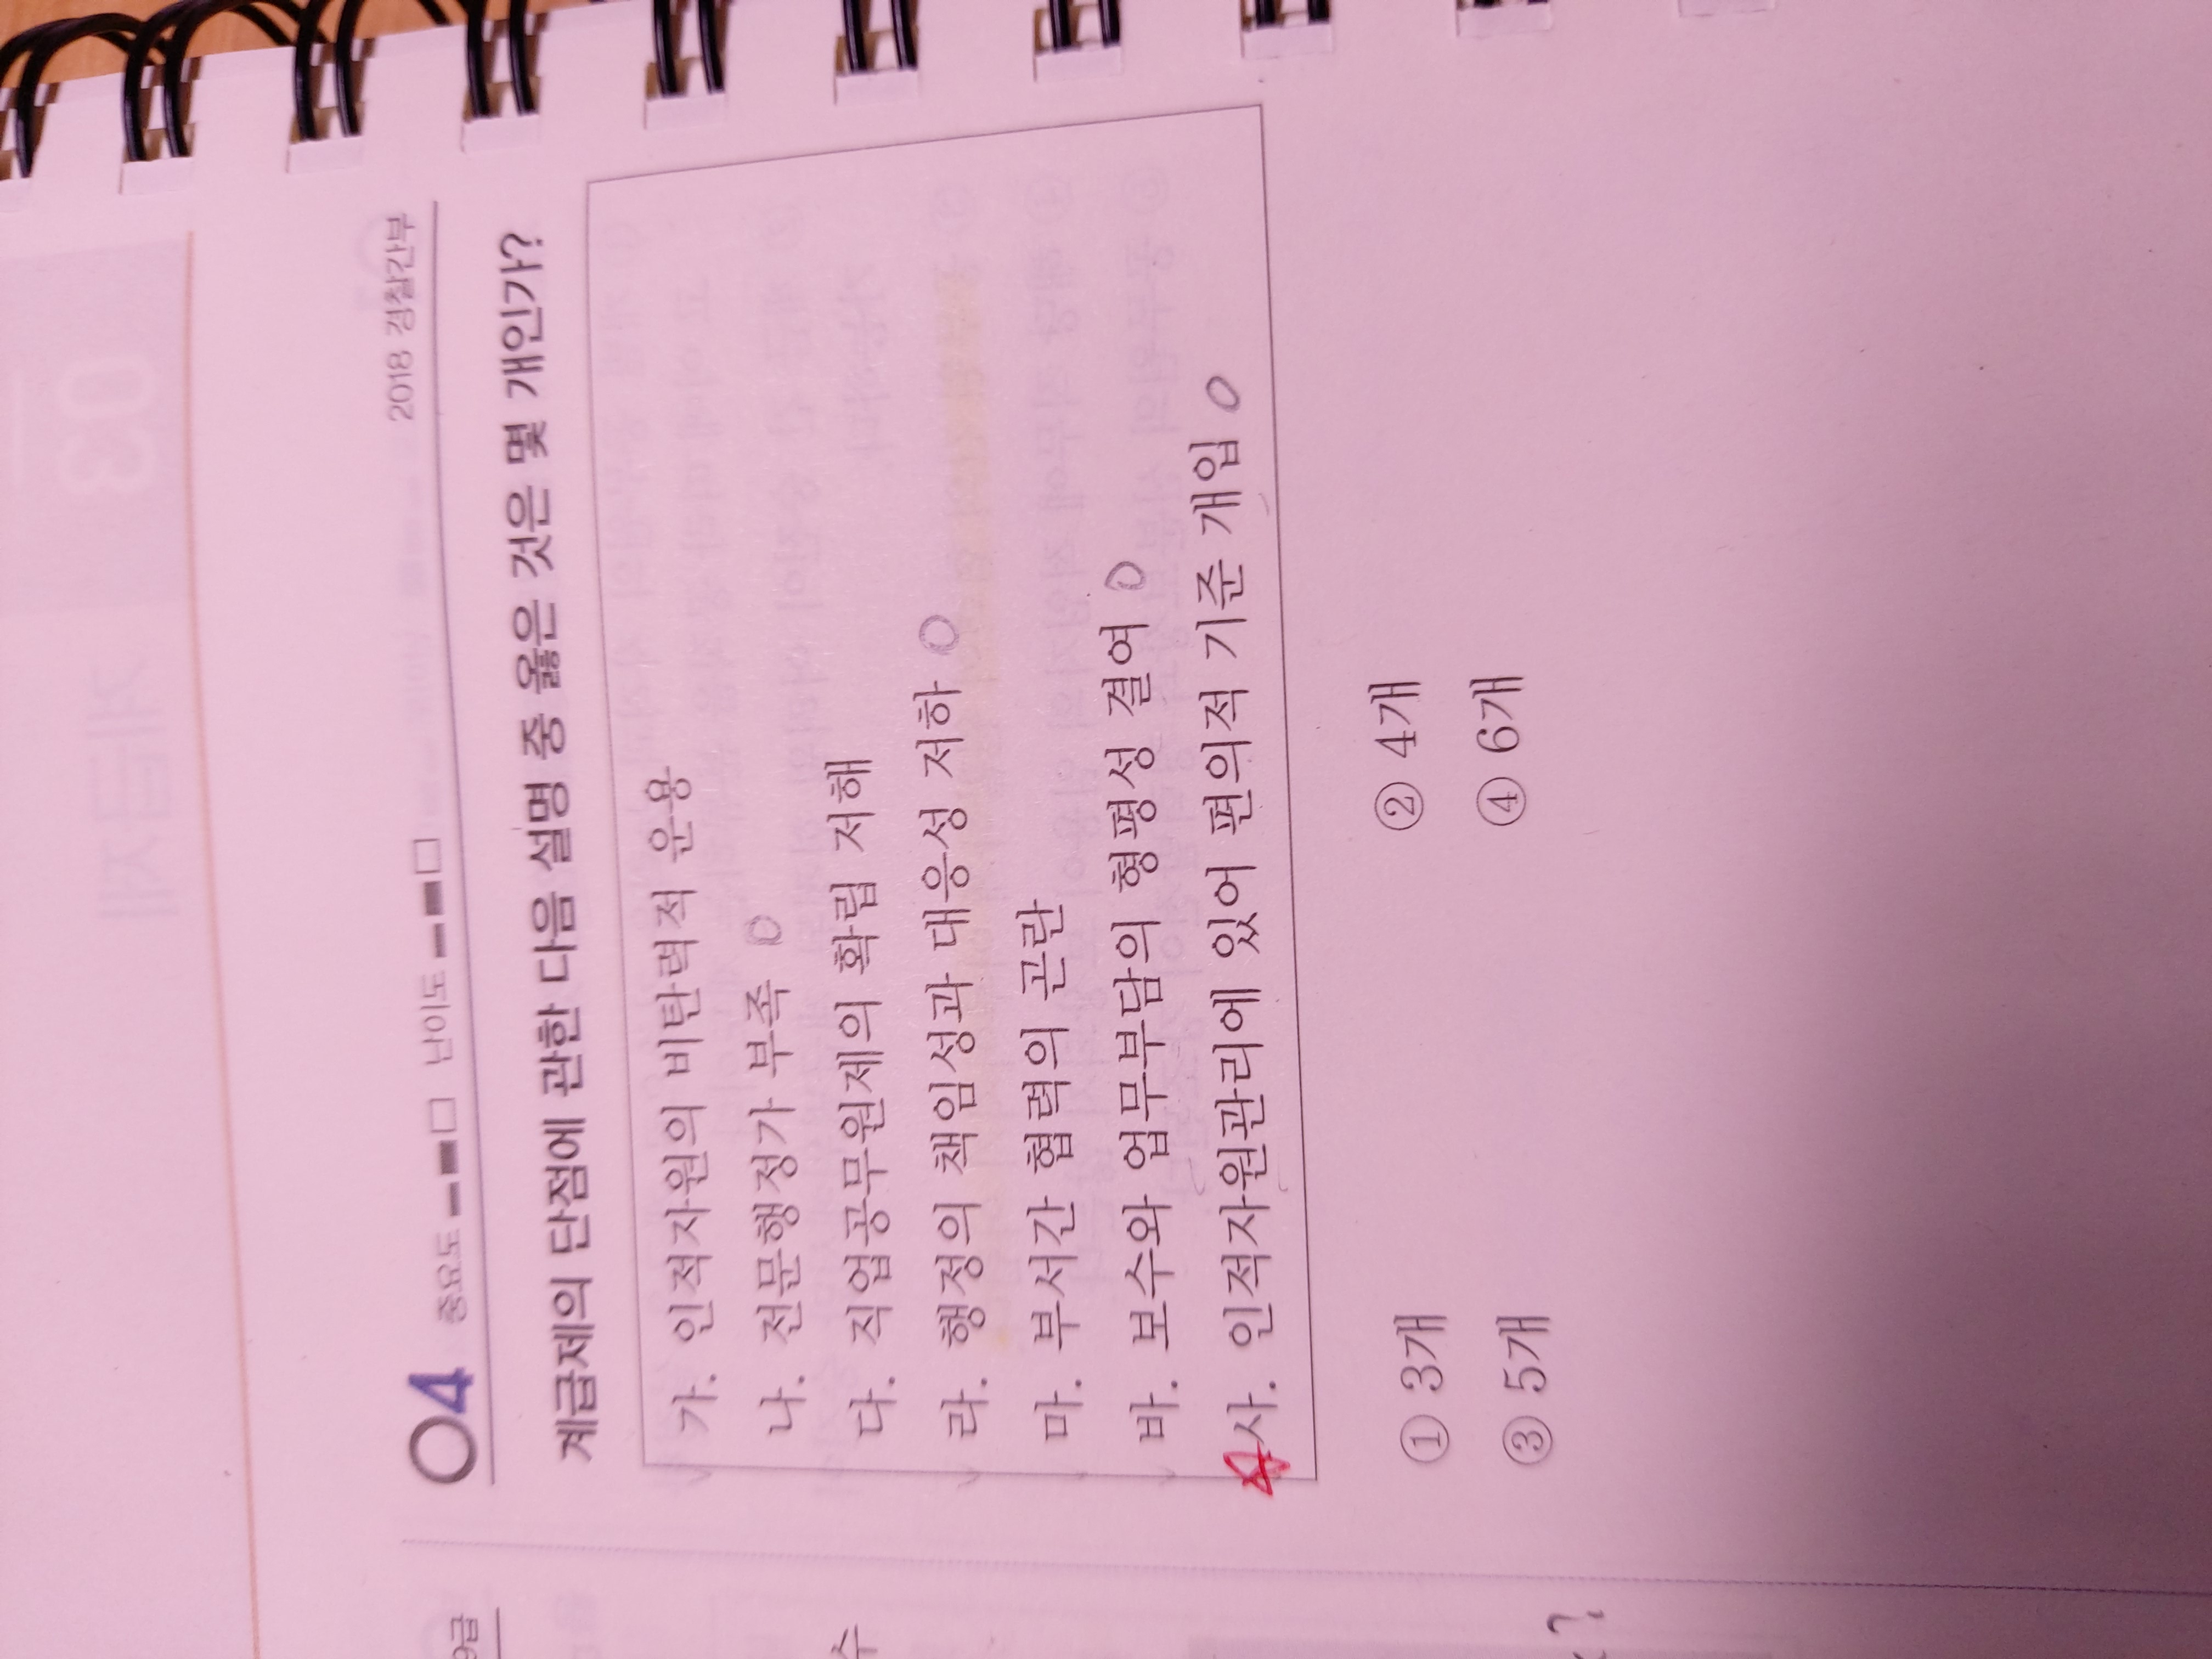 04 중요도 난이도 2018 경찰간부
계급제의 단점에 관한 다음 설명 중 옳은 것은 몇 개인가?
가. 인적자원의 비탄력적 운용
나. 전문행정가 부족 O
다. 직업공무원제의 확립 저해
라. 행정의 책임성과 대응성 저하 O
마. 부서간 협력의 곤란
바. 보수와 업무부담의 형평성 결여 O
사. 인적자원관리에 있어 편의적 기준 개입 O
① 3개 ② 4개
③ 5개 ④ 6개
9급
수